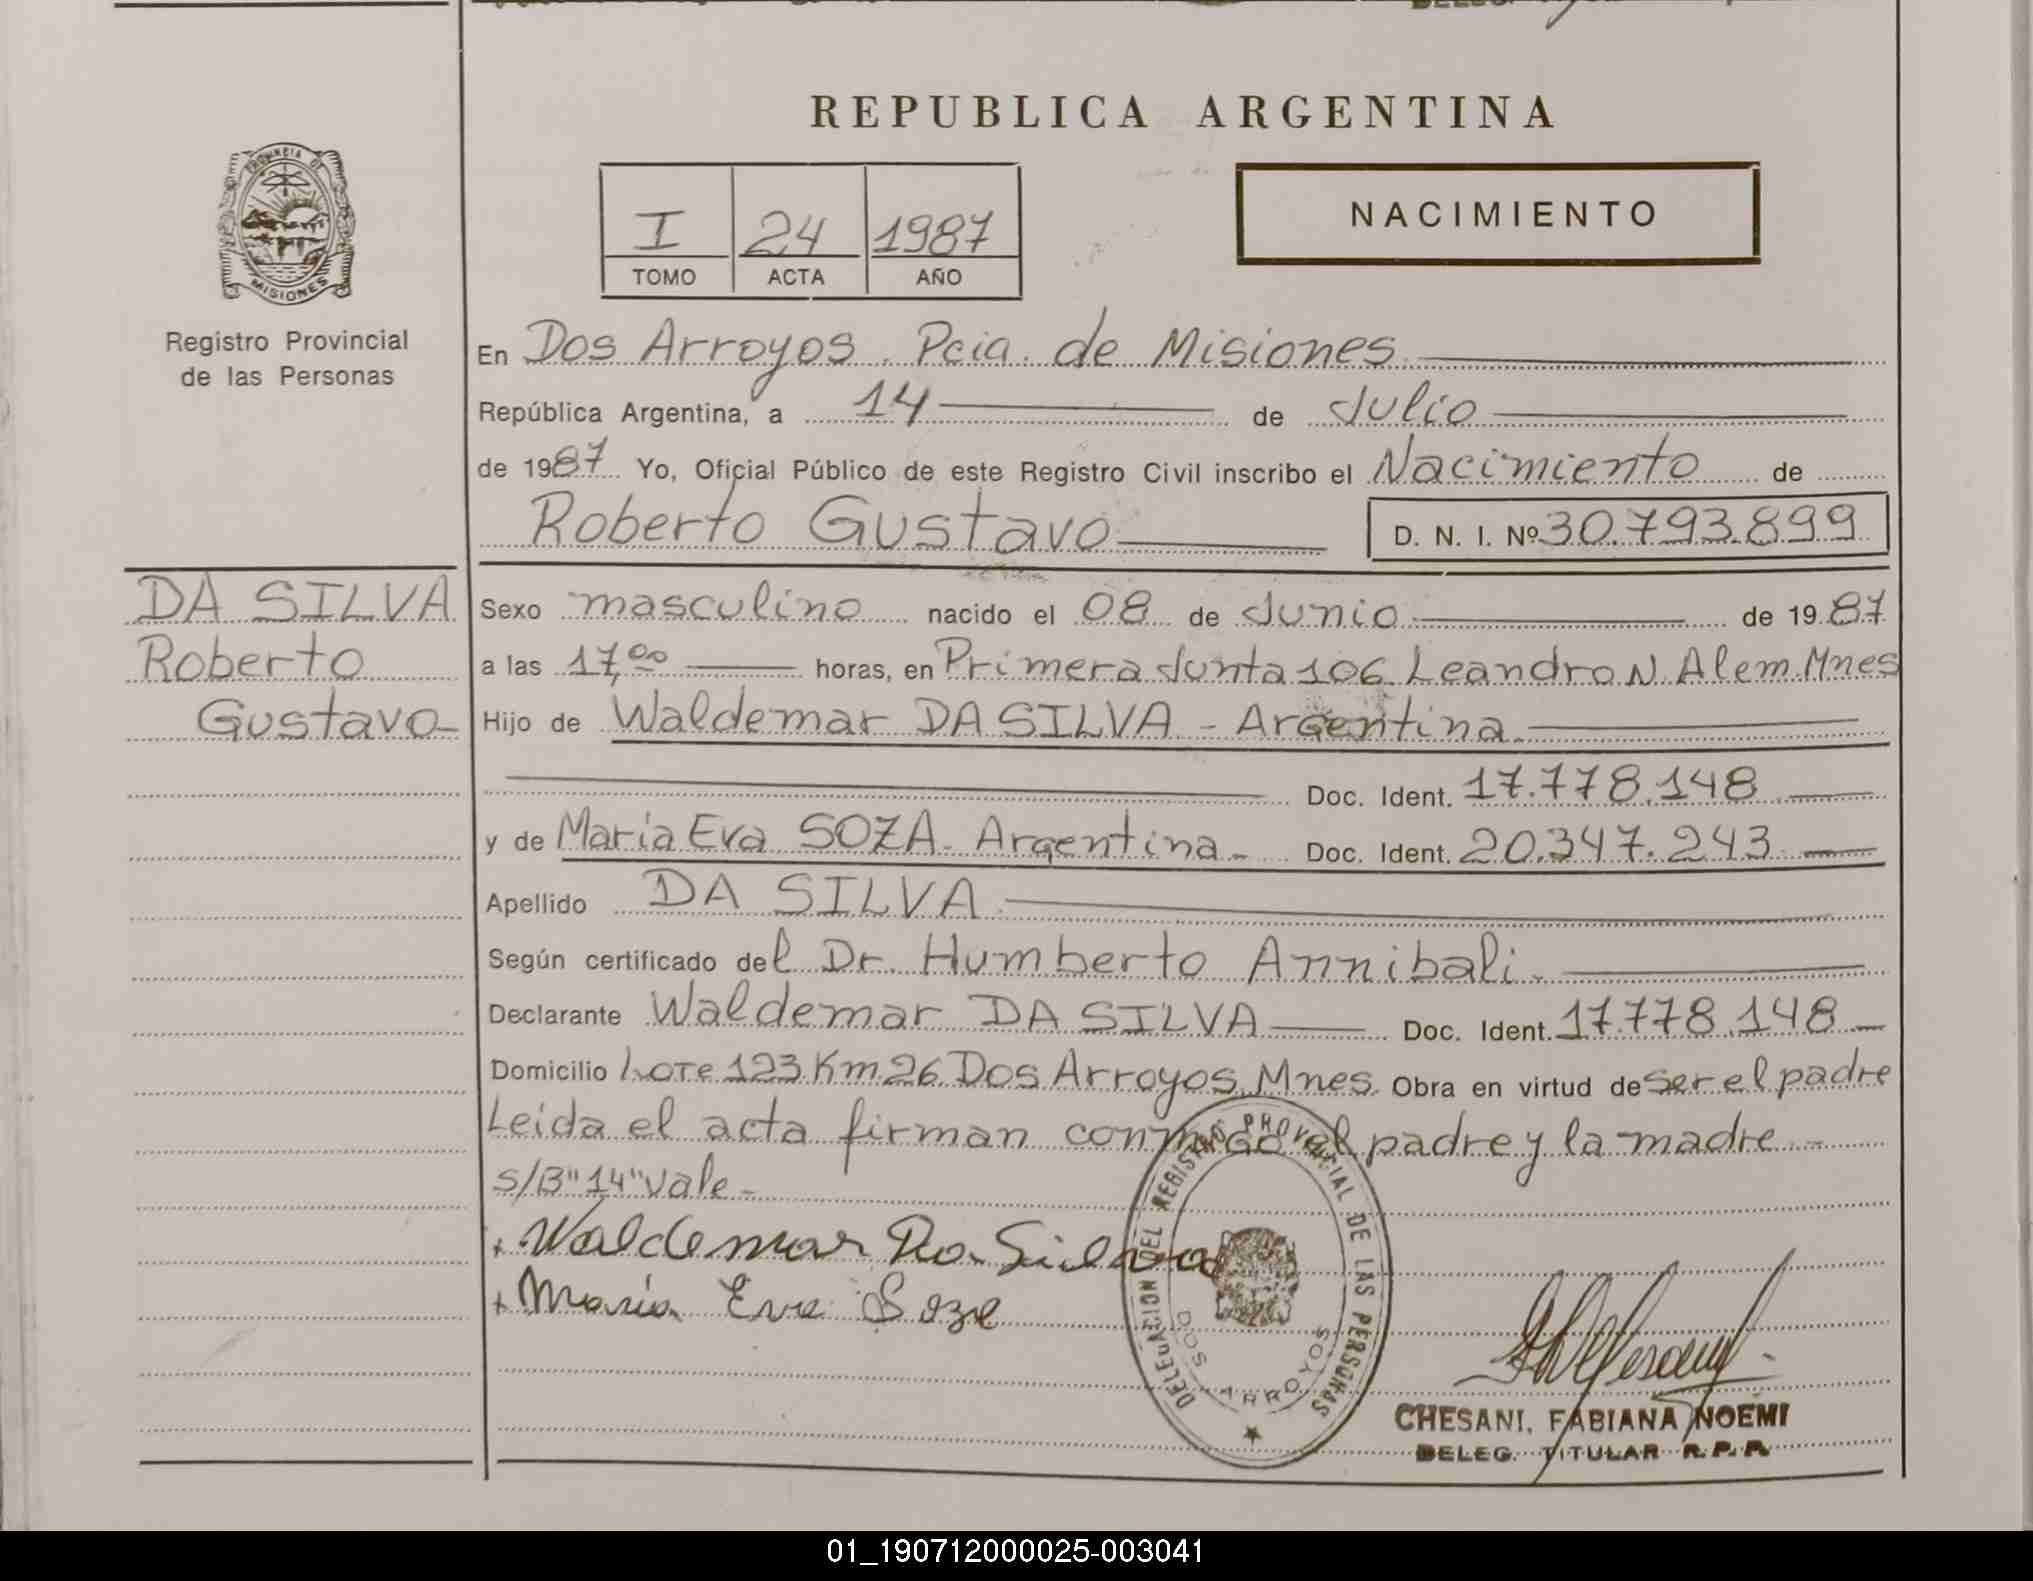 REPUBLICA ARGENTINA
PROVINCIA DE
MISIONES
Registro Provincial
de las Personas
I 24 1987
TOMO ACTA AÑO
NACIMIENTO
En Dos Arroyos. Pcia. de Misiones
República Argentina, a 14 de Julio
de 1987 Yo, Oficial Público de este Registro Civil inscribo el Nacimiento de
Roberto Gustavo D. N. I. Nº 30.793.899
DA SILVA
Roberto
Gustavo
Sexo masculino nacido el 08 de Junio de 1987
a las 17,00 horas, en Primera Junta 106 Leandro N. Alem. Mnes
Hijo de Waldemar DA SILVA - Argentina
Doc. Ident. 17.778.148
y de María Eva SOZA - Argentina - Doc. Ident. 20.347.243
Apellido DA SILVA
Según certificado del Dr. Humberto Annibali
Declarante Waldemar DA SILVA Doc. Ident. 17.778.148
Domicilio Lote 123 Km 26 Dos Arroyos, Mnes. Obra en virtud de ser el padre
Leída el acta firman conmigo el padre y la madre
S/B "14" vale -
+ Waldemar Da Silva
+ María Eva Soza
DELEGACION DEL REGISTRO PROVINCIAL DE LAS PERSONAS
DOS ARROYOS
CHESANI, FABIANA NOEMI
DELEG. TITULAR R.P.P.
01_190712000025-003041